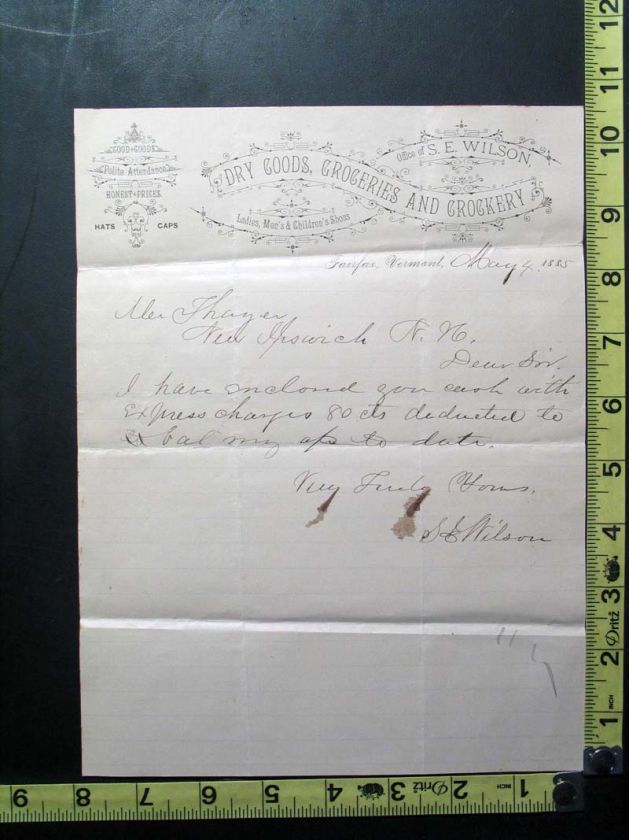 GOOD GOODS,
Polite Attendance
HONEST PRICES.
HATS CAPS
Office of S. E. WILSON,
DRY GOODS, GROCERIES AND CROCKERY.
Ladies, Men's & Children's Shoes
Fairfax, Vermont, May 4, 1885
Thayer
New Ipswich N. H.
Dear Sir.
I have inclosed you cash with
Express charges 80 cts deducted to
bal my a/c to date.
Very Truly Yours,
S E Wilson
12
11
10
9
8
7
6
5
4
3 Dritz
2
1 INCH
9 8 7 6 5 4 3 Dritz 2 1 INCH